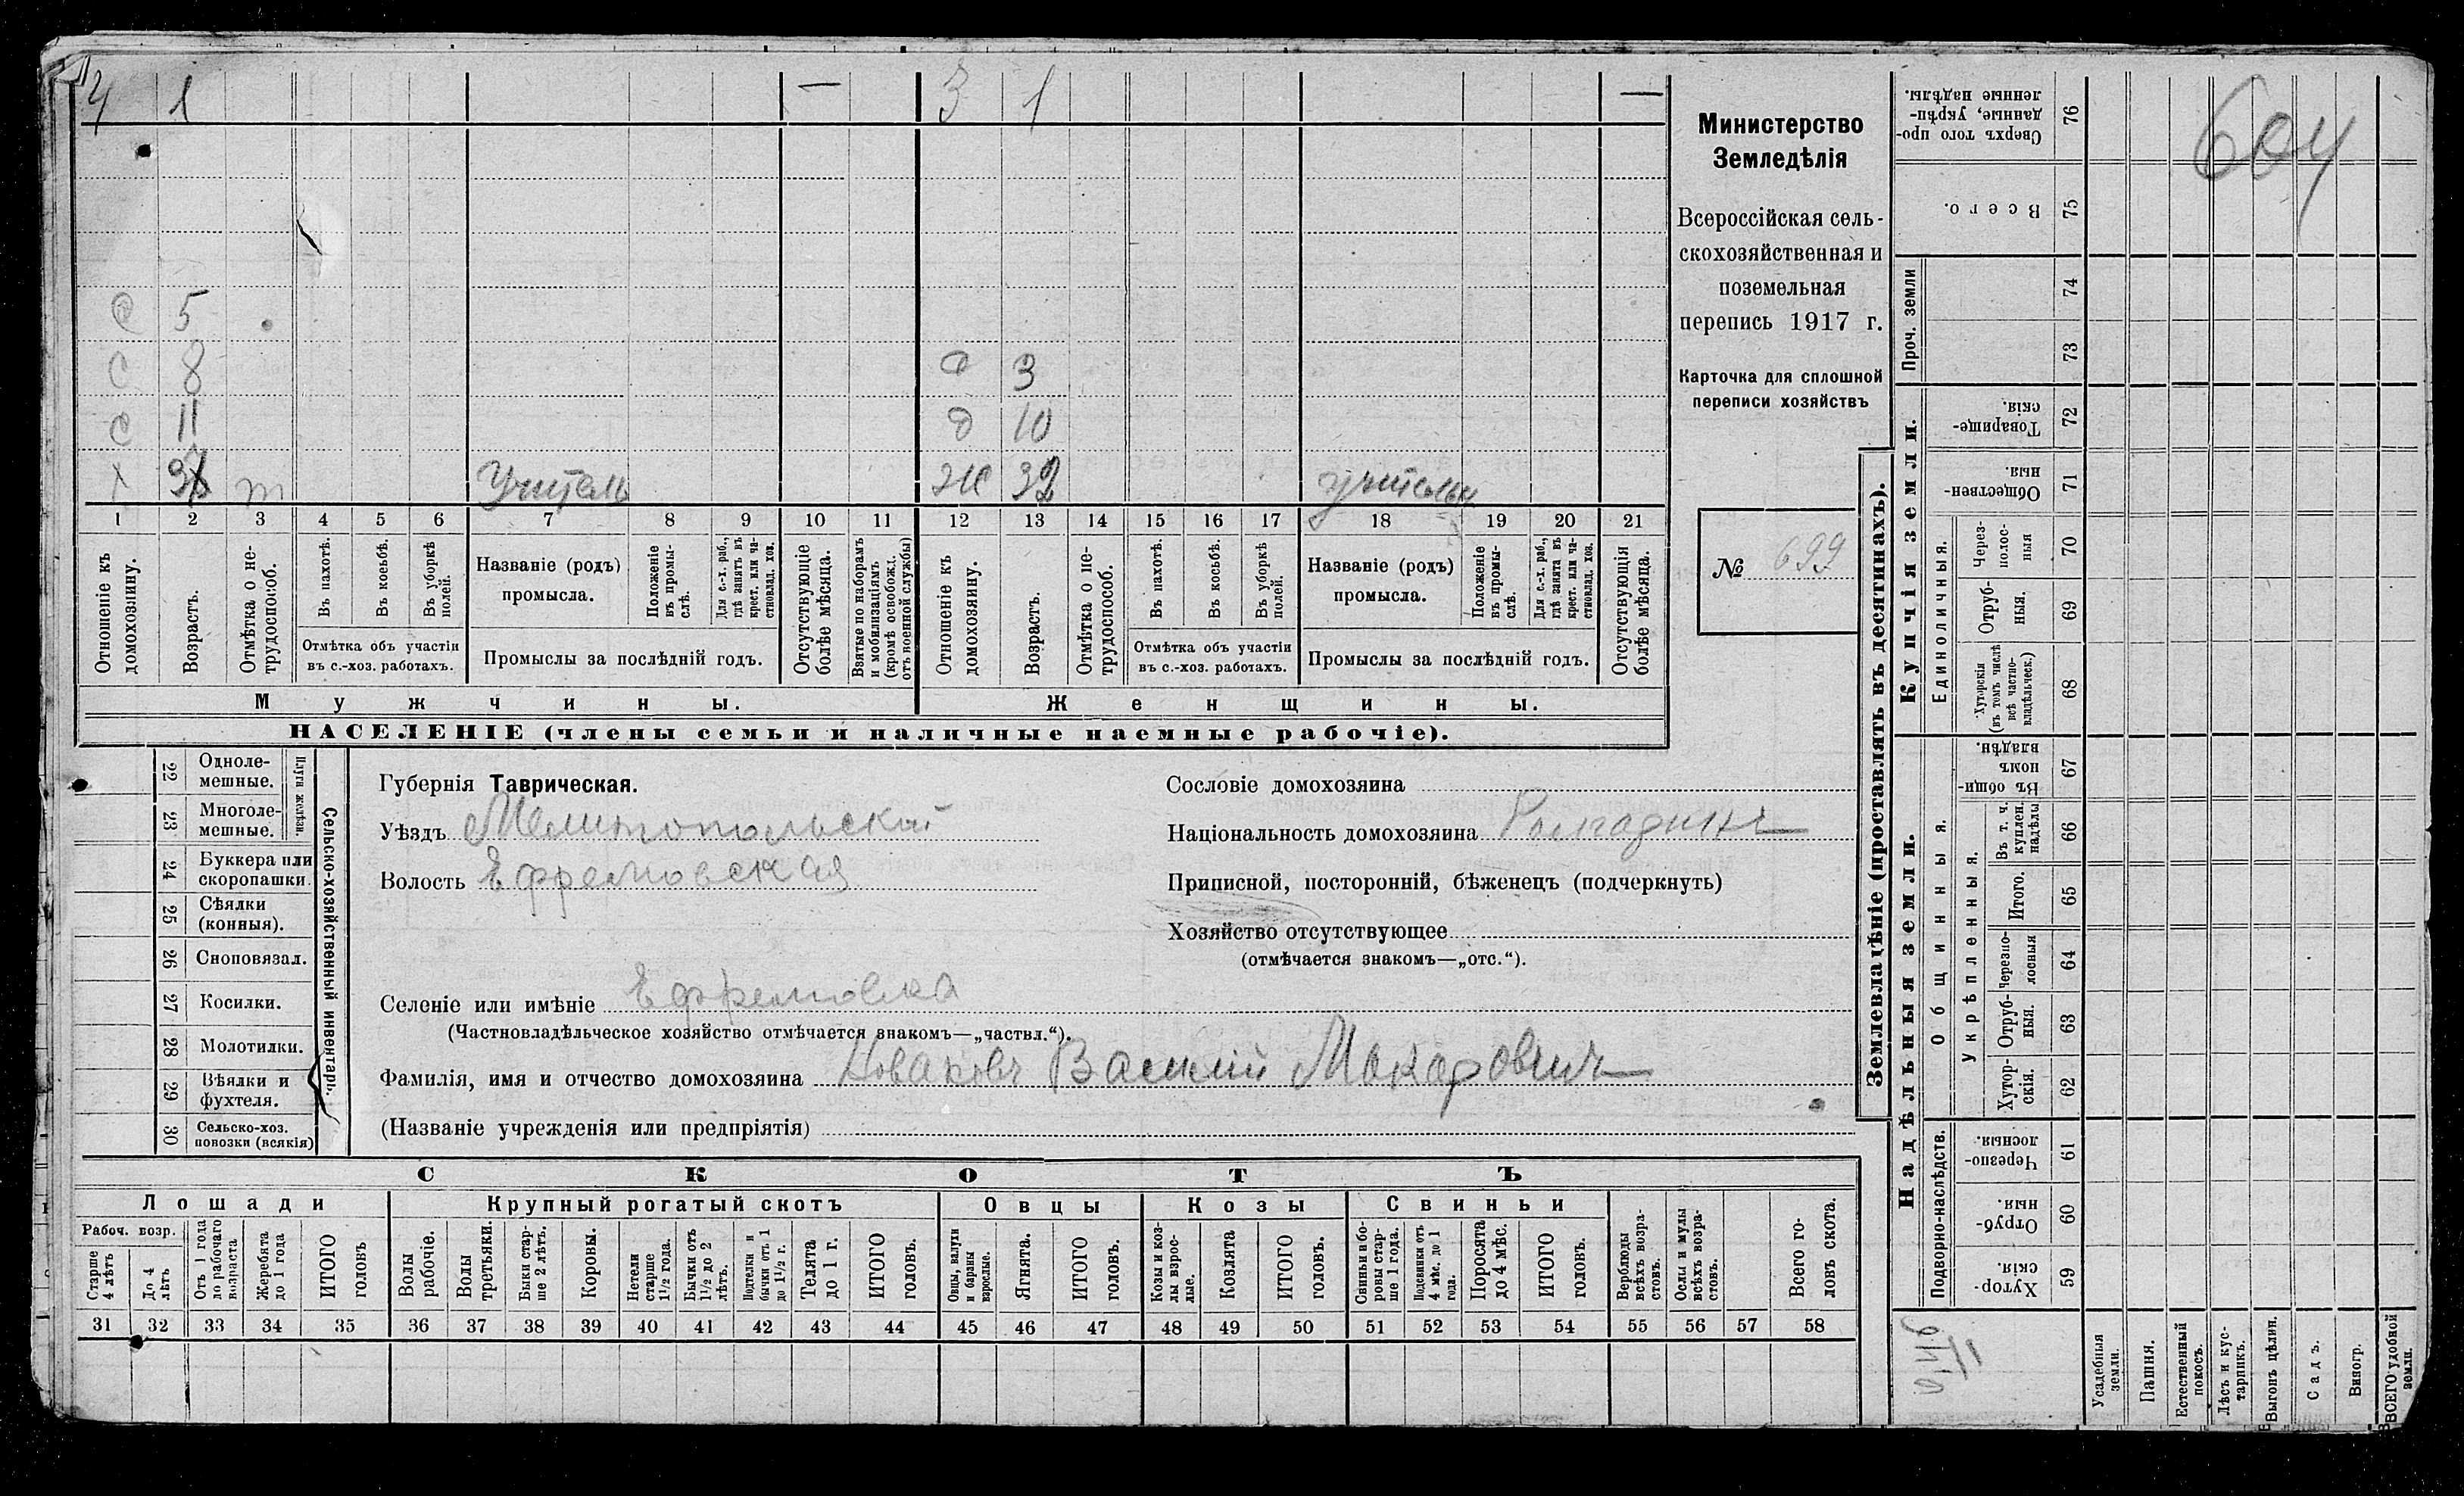 4 1 — 3 1 —
С 5
С 8 д 3
С 11 д 10
Х т Учитель Ж 32 учительн
1 2 3 4 5 6 7 8 9 10 11 12 13 14 15 16 17 18 19 20 21
Отношеніе къ домохозяину.
Возрастъ.
Отмѣтка о не-трудоспособ.
Въ пахотѣ.
Въ косьбѣ.
Въ уборкѣ полей.
Отмѣтка объ участіи въ с.-хоз. работахъ.
Названіе (родъ) промысла.
Положеніе въ промы-слѣ.
Для с.-х. раб., гдѣ занятъ въ крест. или ча-стновлад. хоз.
Промыслы за послѣдній годъ.
Отсутствующіе болѣе мѣсяца.
Взятые по наборамъ и мобилизаціямъ (кромѣ освобожд. отъ военной службы)
Отношеніе къ домохозяину.
Возрастъ.
Отмѣтка о не-трудоспособ.
Въ пахотѣ.
Въ косьбѣ.
Въ уборкѣ полей.
Отмѣтка объ участіи въ с.-хоз. работахъ.
Названіе (родъ) промысла.
Положеніе въ промы-слѣ.
Для с.-х. раб., гдѣ занята въ крест. или ча-стновлад. хоз.
Промыслы за послѣдній годъ.
Отсутствующія болѣе мѣсяца.
Мужчины. Женщины.
НАСЕЛЕНІЕ (члены семьи и наличные наемные рабочіе).
Министерство
Земледѣлія
Всероссійская сель-
скохозяйственная и
поземельная
перепись 1917 г.
Карточка для сплошной
переписи хозяйствъ
№ 699
22 Одноле-мешные.
23 Многоле-мешные.
Плуги желѣзн.
24 Буккера или скоропашки.
25 Сѣялки (конныя).
26 Сноповязал.
27 Косилки.
28 Молотилки.
29 Вѣялки и фухтеля.
30 Сельско-хоз. повозки (всякія)
Сельско-хозяйственный инвентарь.
Губернія Таврическая.
Уѣздъ Мелитопольскій
Волость Ефремовская
Селеніе или имѣніе Ефремовка
(Частновладѣльческое хозяйство отмѣчается знакомъ—„частвл.“).
Фамилія, имя и отчество домохозяина Новаковъ Василій Макаровичъ
(Названіе учрежденія или предпріятія)
Сословіе домохозяина
Національность домохозяина Болгаринъ
Приписной, посторонній, бѣженецъ (подчеркнуть)
Хозяйство отсутствующее
(отмѣчается знакомъ—„отс.“).
СКОТЪ
Лошади Крупный рогатый скотъ Овцы Козы Свиньи
Рабоч. возр.
Старше 4 лѣтъ
До 4 лѣтъ
Отъ 1 года до рабочаго возраста
Жеребята до 1 года
ИТОГО головъ
Волы рабочіе.
Волы третьяки.
Быки стар-ше 2 лѣтъ.
Коровы.
Нетели старше 1½ года.
Бычки отъ 1½ до 2 лѣтъ.
Подтелки и бычки отъ 1 до 1½ г.
Телята до 1 г.
ИТОГО головъ.
Овцы, валухи и бараны взрослые.
Ягнята.
ИТОГО головъ.
Козы и коз-лы взрос-лые.
Козлята
ИТОГО головъ.
Свиньи и бо-ровы стар-ше 1 года.
Подсвинки отъ 4 мѣс. до 1 года.
Поросята до 4 мѣс.
ИТОГО головъ.
Верблюды всѣхъ возра-стовъ.
Ослы и мулы всѣхъ возра-стовъ.
Всего го-ловъ скота.
31 32 33 34 35 36 37 38 39 40 41 42 43 44 45 46 47 48 49 50 51 52 53 54 55 56 57 58
Землевладѣніе (проставлять въ десятинахъ).
604
Сверхъ того про-данные, укрѣп-ленные надѣлы. 76
Всего. 75
Проч. земли
74
73
Купчія земли.
Товарище-скія. 72
Обществен-ныя. 71
Единоличныя.
Через-полос-ныя 70
Отруб-ныя. 69
Хуторскія (въ томъ числѣ всѣ частно-владѣльческ.) 68
Надѣльныя земли.
Общинныя.
Въ общи-номъ владѣн. 67
Укрѣпленныя.
Въ т. ч. куплен. надѣлы 66
Итого. 65
Черезпо-лосныя 64
Отруб-ныя. 63
Хутор-скія. 62
Подворно-наслѣдств.
Черезпо-лосныя. 61
Отруб-ныя. 60
Хутор-скія. 59
Усадебныя земли.
Пашня.
Естественный покосъ.
Лѣсъ и кус-тарникъ.
Выгонъ цѣлин.
Садъ.
Виногр.
ВСЕГО удобной земли.